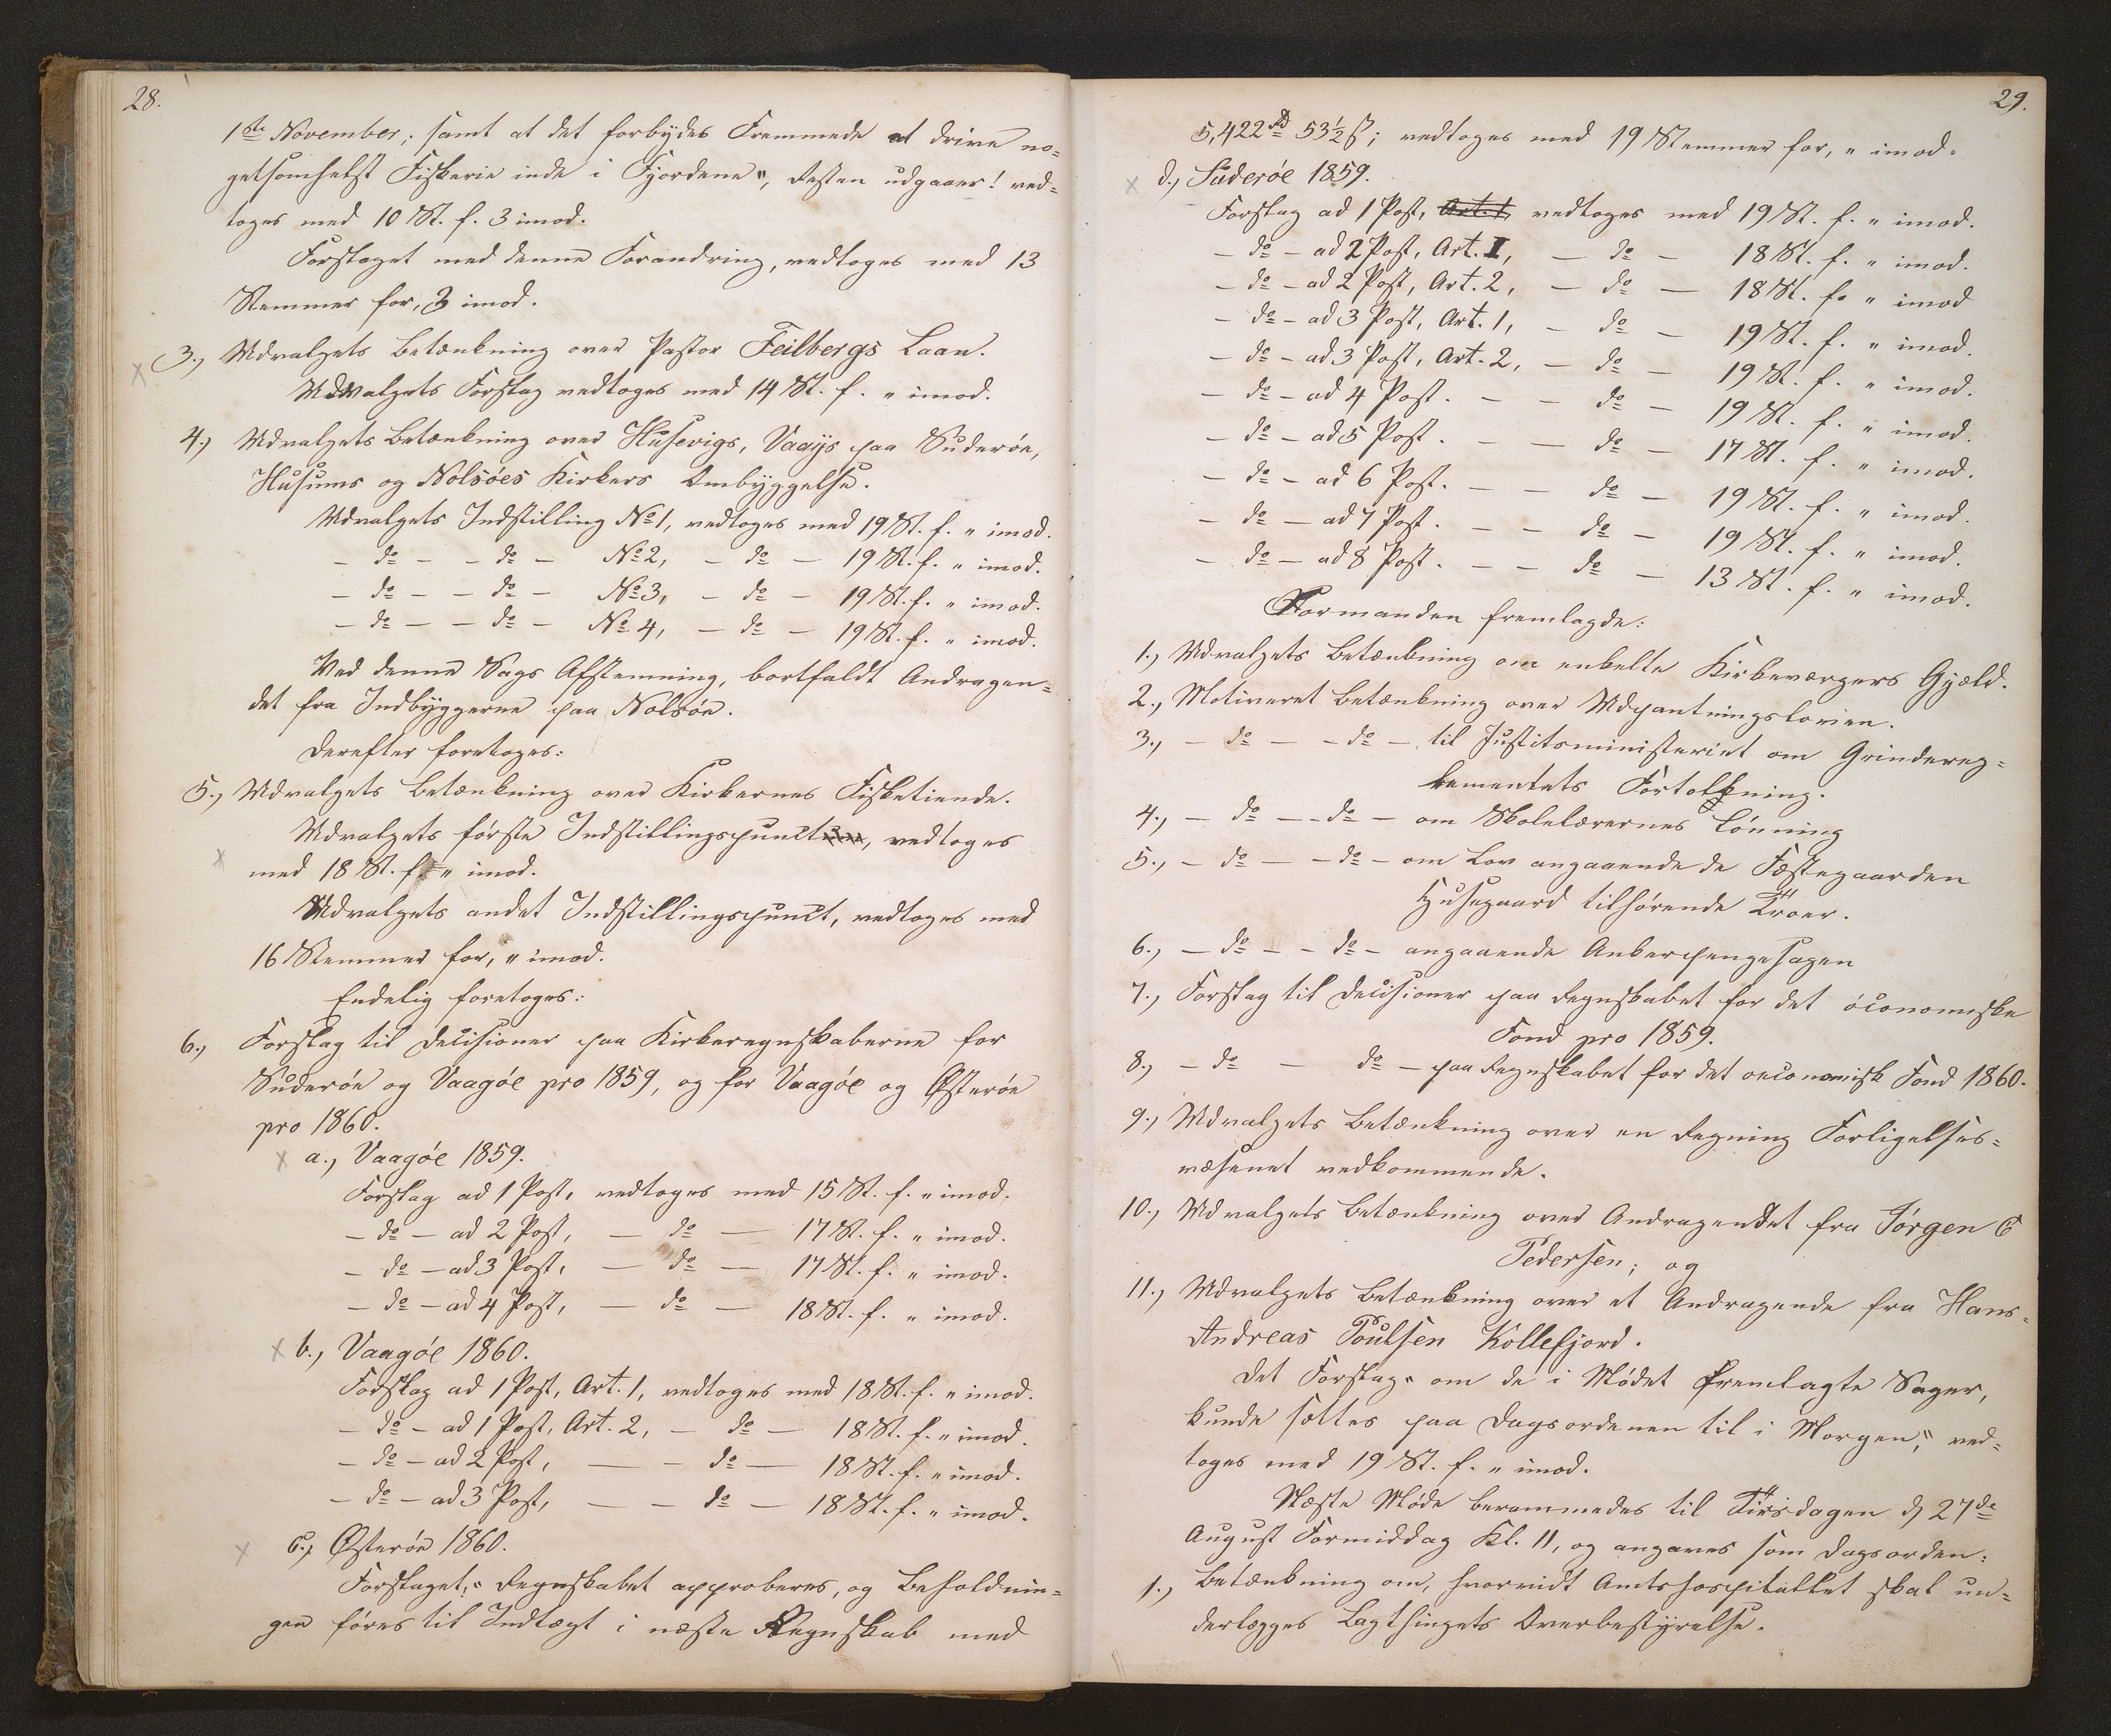 28.
1ste November; samt at det forbydes Fremmede at drive no=
getsomhelst Fiskerie inde i Fjordene", Resten udgaaer! ved=
toges med 10 St. f. 3 imod.
Forslaget med denne Forandring, vedtoges med 13
Stemmer for, 3 imod.
3., Udvalgets Betænkning over Pastor Feilbergs Laan.
Udvalgets Forslag vedtoges med 14 St. f. " imod.
4., Udvalgets Betænkning over Husevigs, Vaags paa Suderöe,
Husums og Nolsöes Kirkers Ombyggelse.
Udvalgets Indstilling No 1, vedtoges med 19 St. f. " imod.
- do - - do - No 2, - do - 19 St. f. " imod.
- do - - do - No 3, - do - 19 St. f. " imod.
- do - - do - No 4, - do - 19 St. f. " imod.
Ved denne Sags Afstemning, bortfaldt Andragen=
det fra Indbyggerne paa Nolsöe.
Derefter foretoges:
5., Udvalgets Betænkning over Kirkernes Fisketiende.
Udvalgets förste Indstillingspunct, vedtoges
med 18 St. f. " imod.
Udvalgets andet Indstillingspunct, vedtoges med
16 Stemmer for, " imod.
Endelig foretoges:
6., Forslag til Decisioner paa Kirkeregnskaberne for
Suderöe og Vaagöe pro 1859, og for Vaagöe og Østeröe
pro 1860.
a., Vaagöe 1859.
Forslag ad 1 Post, vedtoges med 15 St. f. " imod.
- do - ad 2 Post, - do - 17 St. f. " imod.
- do - ad 3 Post, - do - 17 St. f. " imod.
- do - ad 4 Post, - do - 18 St. f. " imod.
b., Vaagöe 1860.
Forslag ad 1 Post, Art. 1, vedtoges med 18 St. f. " imod.
- do - ad 1 Post, Art. 2, - do - 18 St. f. " imod.
- do - ad 2 Post, - - do - 18 St. f. " imod.
- do - ad 3 Post, - - do - 18 St. f. " imod.
c., Østeröe 1860.
Forslaget: "Regnskabet approberes, og Beholdnin=
gen föres til Indtægt i næste Regnskab med
29.
5,422 Rd 53½ ß; vedtoges med 19 Stemmer for, " imod.
d., Suderöe 1859.
Forslag ad 1 Post, Art. 1, vedtoges med 19 St. f. " imod.
- do - ad 2 Post, Art. 1, - do - 18 St. f. " imod.
- do - ad 2 Post, Art. 2, - do - 18 St. f. " imod
- do - ad 3 Post, Art. 1, - do - 19 St. f. " imod.
- do - ad 3 Post, Art. 2, - do - 19 St. f. " imod.
- do - ad 4 Post. - - do - 19 St. f. " imod.
- do - ad 5 Post. - - do - 17 St. f. " imod.
- do - ad 6 Post. - - do - 19 St. f. " imod.
- do - ad 7 Post. - - do - 19 St. f. " imod.
- do - ad 8 Post. - - do - 13 St. f. " imod.
Formanden fremlagde:
1., Udvalgets Betænkning om enkelte Kirkeværgers Gjæld.
2., Motiveret Betænkning over Udpantningsloven.
3., - do - - do - til Justitsministeriet om Grindereg=
lementets Fortolkning.
4., - do - - do - om Skolelærernes Lönning
5., - do - - do - om Lov angaaende de Fæstegaarden
Husegaard tilhörende Tröer.
6., - do - - do - angaaende Ankerpengesagen
7., Forslag til Decisioner paa Regnskabet for det öconomiske
Fond pro 1859.
8., - do - do - paa Regnskabet for det oeconomisk Fond 1860.
9., Udvalgets Betænkning over en Regning Forligelses=
væsenet vedkommende.
10., Udvalgets Betænkning over Andragendet fra Jörgen C
Pedersen; og
11., Udvalgets Betænkning over et Andragende fra Hans
Andreas Poulsen Kollefjord.
Det Forslag "om de i Mödet fremlagte Sager,
kunde sættes paa Dagsordenen til i Morgen", ved=
toges med 19 St. f. " imod.
Næste Möde berammedes til Tirsdagen d 27de
August Formiddag Kl. 11, og angaves som Dagsorden:
1., Betænkning om, hvorvidt Amtshospitallet skal un=
derlægges Lagthingets Overbestyrelse.